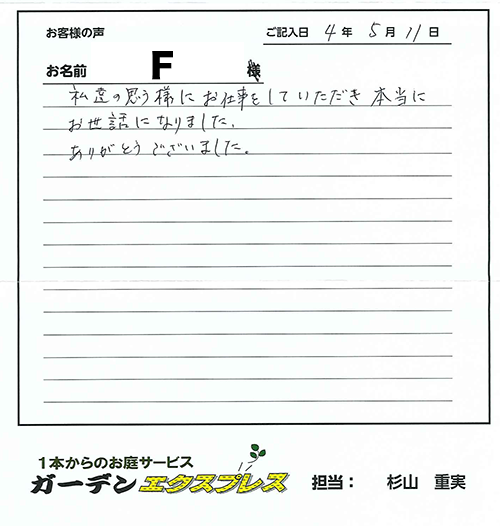 お客様の声
ご記入日 4年 5月 11日
お名前 F 様
私達の思う様にお仕事をしていただき本当に
お世話になりました。
ありがとうございました。
1本からのお庭サービス
ガーデンエクスプレス 担当： 杉山 重実